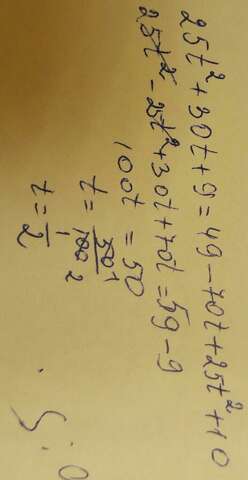 25t²+30t+9=49-70t+25t²+10
25t²-25t²+30t+70t=59-9
100t=50
t=50/100 1/2
t=1/2